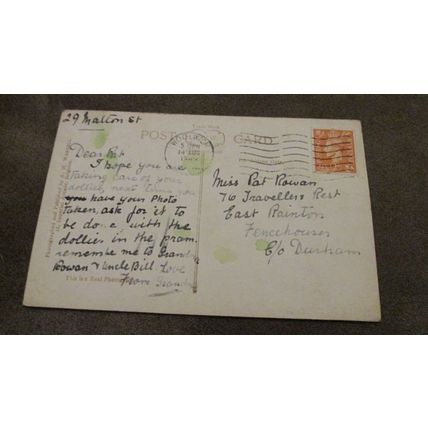 29 Malton St
Trade Mark
POST CARD
Dear Pat
I hope you are
taking care of your
dollies, next time you
you have your photo
taken, ask for it to
be done with the
dollies in the pram.
remember me to
Rowan & Uncle Bill Love
From
This is a Real Photograph
Miss Pat Rowan
76 Travellers Rest
East Rainton
Fencehouses
C/o Durham